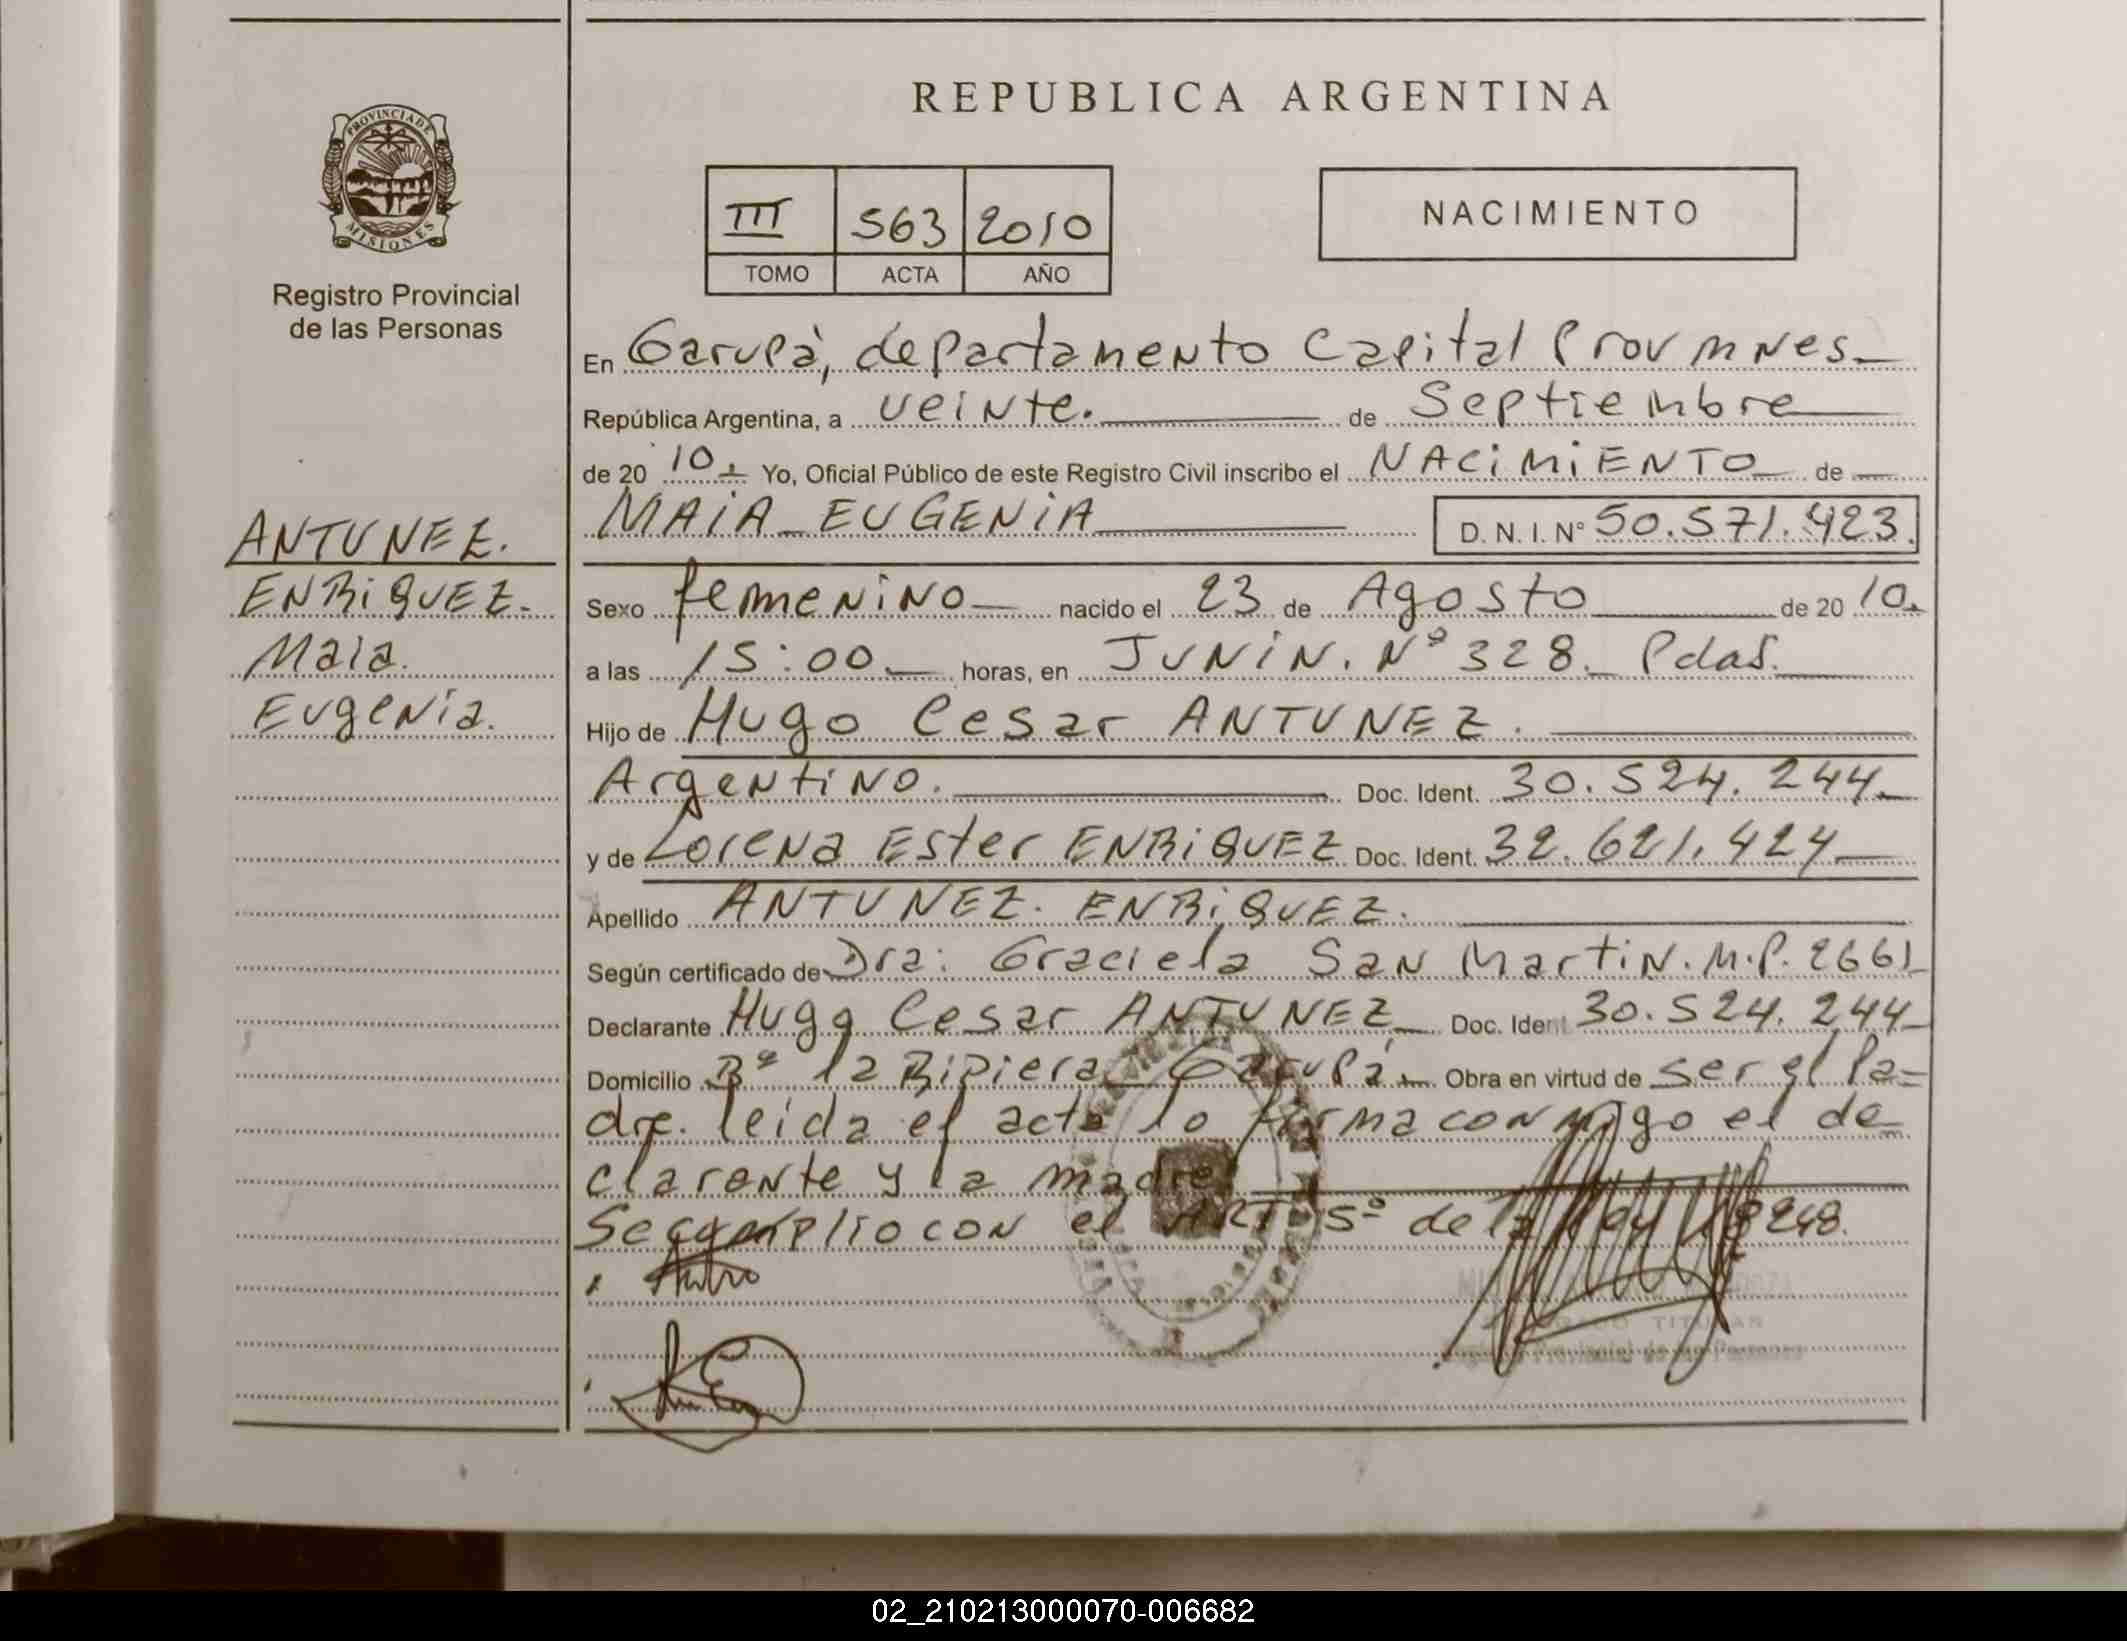 REPUBLICA ARGENTINA
PROVINCIA DE
MISIONES
Registro Provincial
de las Personas
III 563 2010
TOMO ACTA AÑO
NACIMIENTO
En Garupà, departamento Capital Prov mnes
República Argentina, a veinte. de Septiembre
de 20 10. Yo, Oficial Público de este Registro Civil inscribo el NACIMIENTO de
MAIA EUGENIA D. N. I. Nº 50.571.423.
ANTUNEZ.
ENRIQUEZ.
Maia.
Eugenia.
Sexo femenino nacido el 23 de Agosto de 20 10.
a las 15:00 horas, en JUNIN. Nº 328. Pdas.
Hijo de Hugo Cesar ANTUNEZ.
Argentino. Doc. Ident. 30.524.244
y de Lorena Ester ENRIQUEZ Doc. Ident. 32.621.424
Apellido ANTUNEZ. ENRIQUEZ.
Según certificado de Dra: Graciela San Martin. M.P. 2661
Declarante Hugo Cesar ANTUNEZ Doc. Ident 30.524.244
Domicilio Bº la Ripiera Garupá Obra en virtud de ser el Pa=
dre. leida el acta lo firma conmigo el de
clarante y la madre
Se cumplio con el ART 5º de la Ley 18248.
TITULAR
02_210213000070-006682